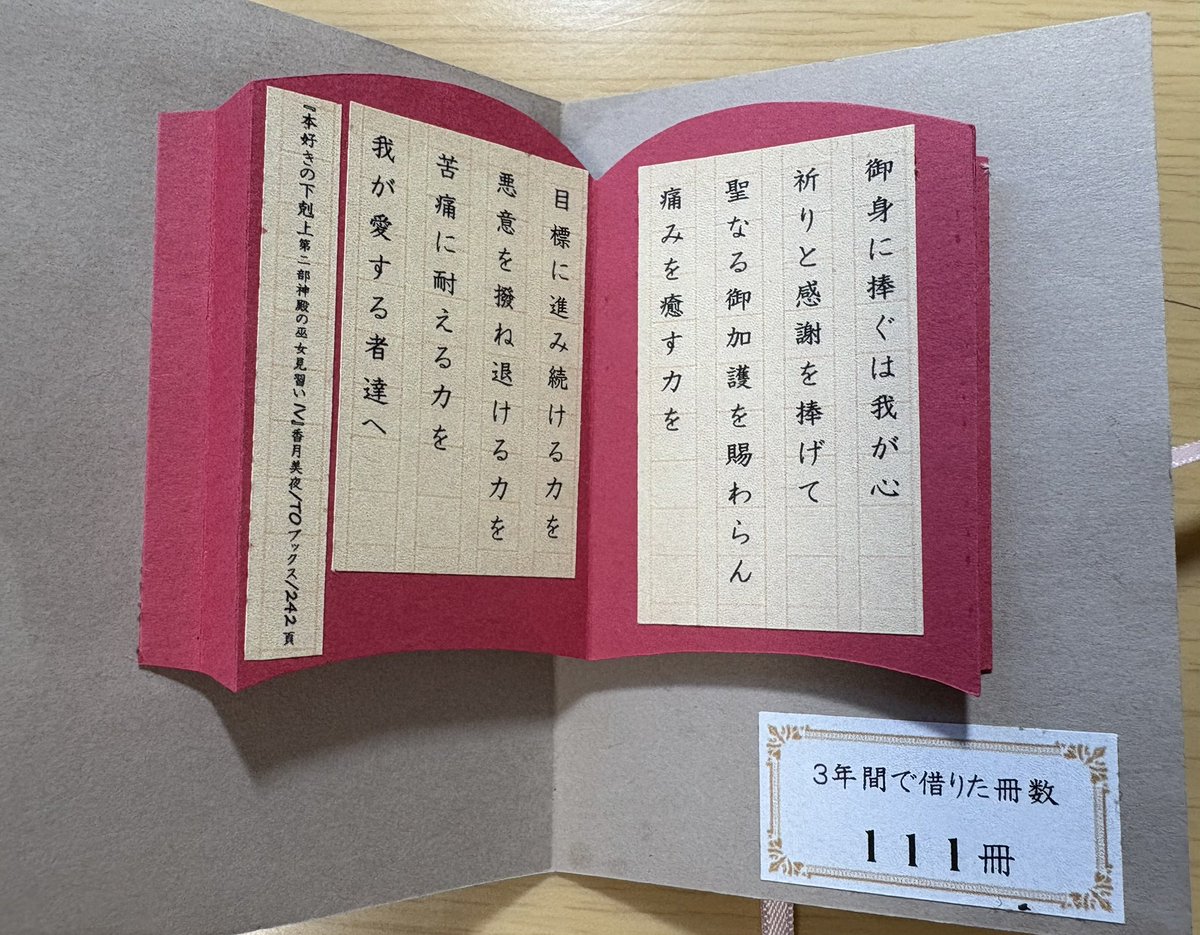 御身に捧ぐは我が心
祈りと感謝を捧げて
聖なる御加護を賜わらん
痛みを癒す力を
目標に進み続ける力を
悪意を撥ね退ける力を
苦痛に耐える力を
我が愛する者達へ
『本好きの下剋上第二部神殿の巫女見習いⅣ』香月美夜/TOブックス/242頁
3年間で借りた冊数
111冊